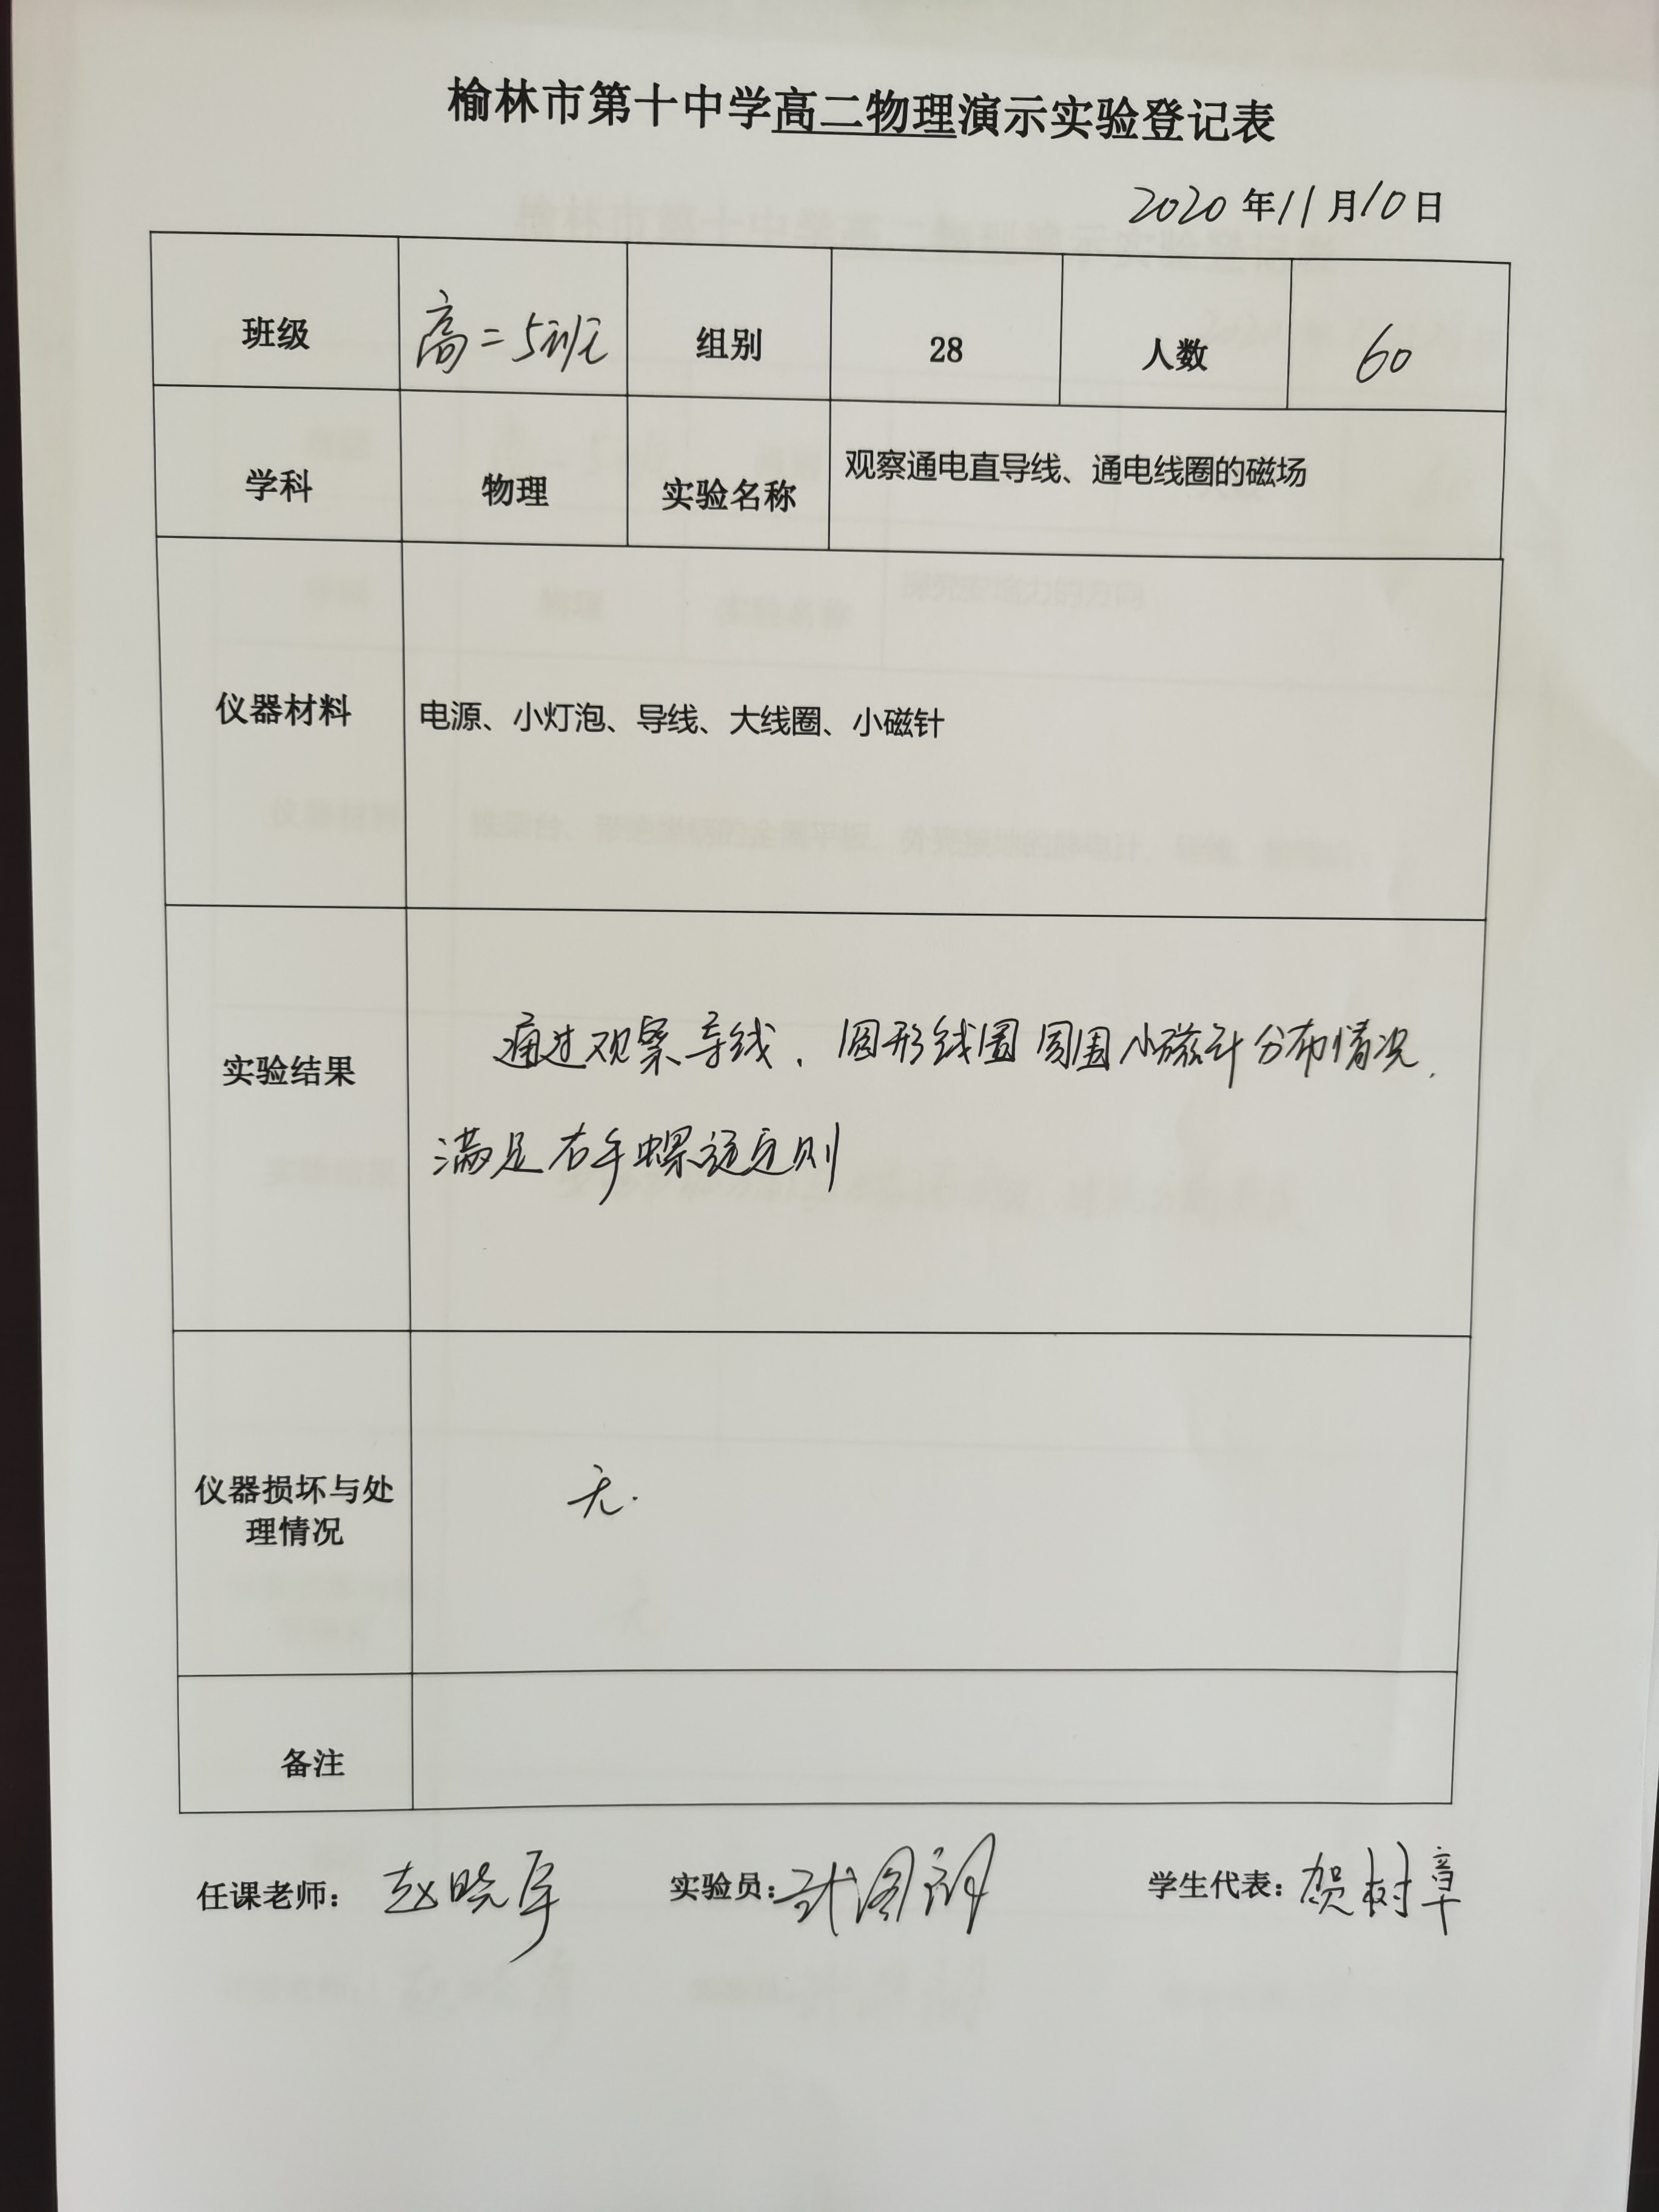 榆林市第十中学高二物理演示实验登记表
2020年11月10日
班级 高二5班 组别 28 人数 60
学科 物理 实验名称 观察通电直导线、通电线圈的磁场
仪器材料 电源、小灯泡、导线、大线圈、小磁针
通过观察导线、圆形线圈周围小磁针分布情况,
实验结果
满足右手螺旋定则
仪器损坏与处
理情况
无.
备注
任课老师: 赵晓军 实验员: 学生代表: 贺树章